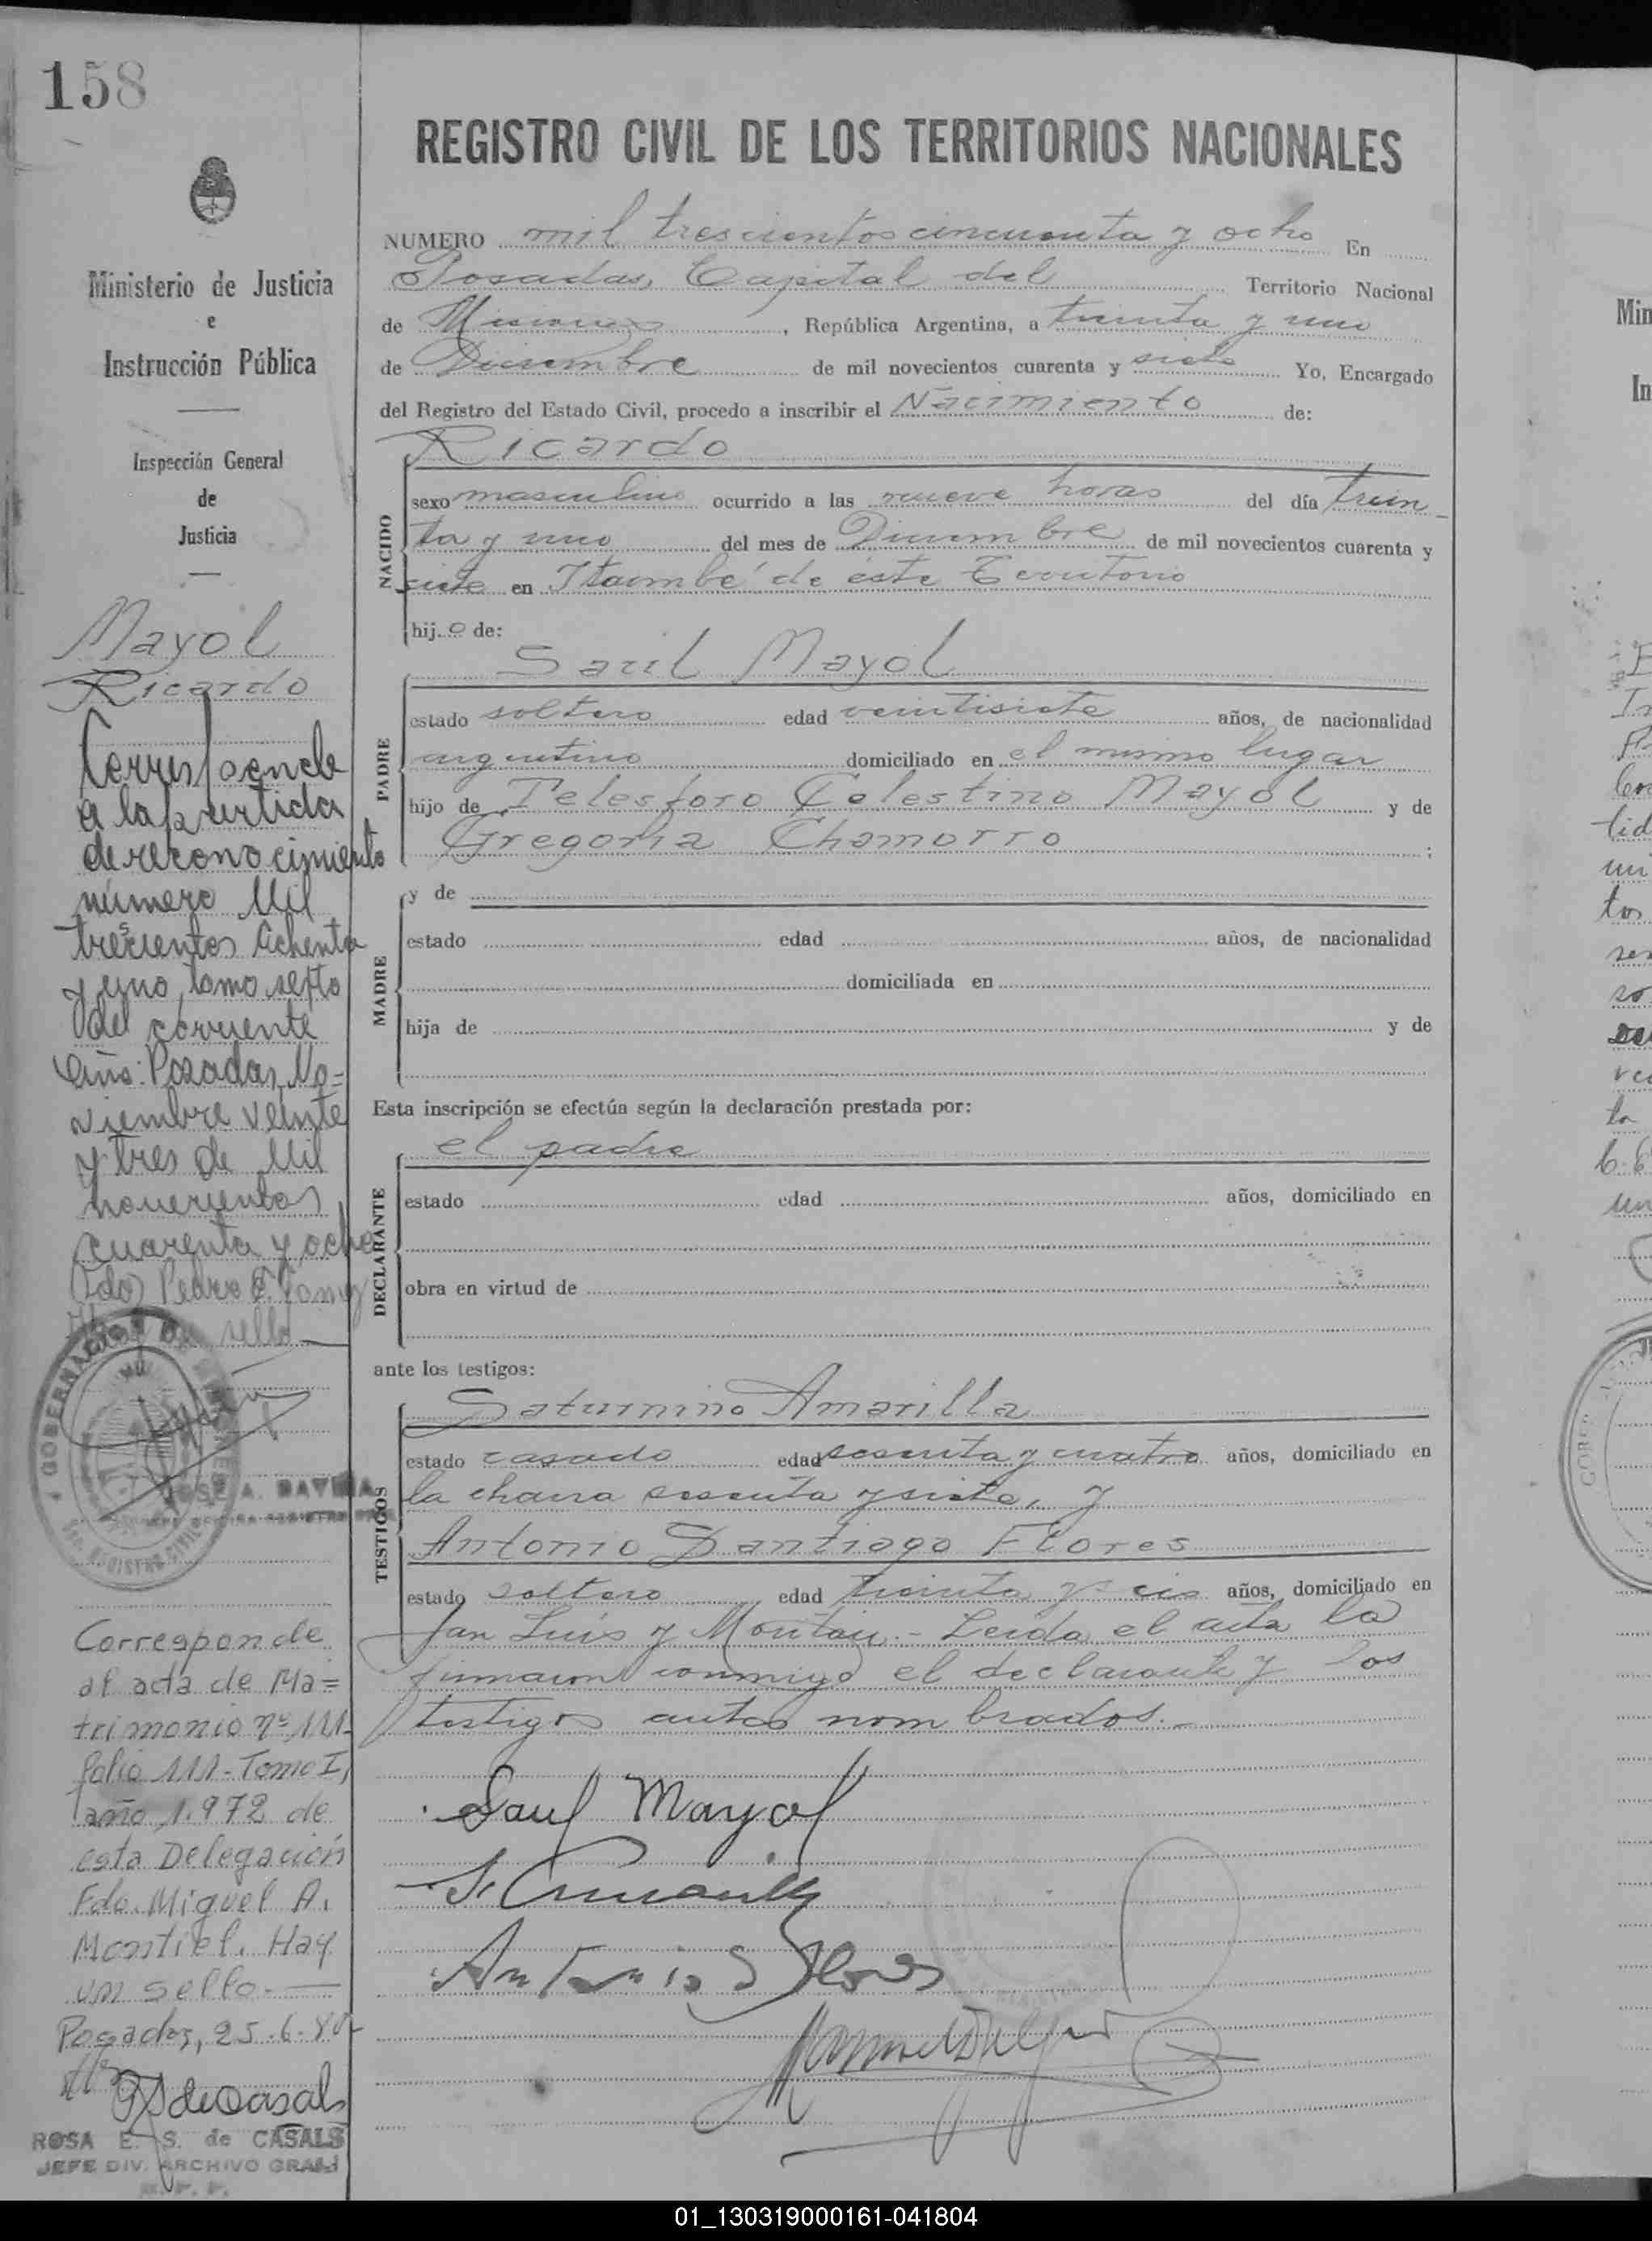 158
REGISTRO CIVIL DE LOS TERRITORIOS NACIONALES
Ministerio de Justicia
e
Instrucción Pública
Inspección General
de
Justicia
Mayol
Ricardo
Corresponde
a la partida
de reconocimiento
número Mil
trescientos Ochenta
y uno, tomo sexto
del corriente
año: Posadas, No=
viembre veinte
y tres de Mil
novecientos
cuarenta y ocho
Fdo) Pedro E.
sello
GOBERNACION DE MISIONES
REGISTRO CIVIL
JOSE A.
Corresponde
al acta de Ma=
trimonio nº 111-
folio 111-Tomo I,
año 1.972 de
esta Delegación
Fdo. Miguel A.
Montiel. Hay
un sello.-
Posadas, 25.6.80
RS de Casals
ROSA E. S. de CASALS
JEFE DIV. ARCHIVO GRAL
NUMERO mil trescientos cincuenta y ocho En
Posadas, Capital del Territorio Nacional
de Misiones, República Argentina, a treinta y uno
de Diciembre de mil novecientos cuarenta y siete Yo, Encargado
del Registro del Estado Civil, procedo a inscribir el Nacimiento de:
NACIDO
Ricardo
sexo masculino ocurrido a las nueve horas del día trein
ta y uno del mes de Diciembre de mil novecientos cuarenta y
siete en Itaembé de éste Territorio
hijo de:
PADRE
Saúl Mayol
estado soltero edad veintisiete años, de nacionalidad
argentino domiciliado en el mismo lugar
hijo de Telesforo Celestino Mayol y de
Gregoria Chamorro ;
MADRE
y de
estado edad años, de nacionalidad
domiciliada en
hija de y de
Esta inscripción se efectúa según la declaración prestada por:
DECLARANTE
el padre
estado edad años, domiciliado en
obra en virtud de
ante los testigos:
TESTIGOS
Saturnino Amarilla
estado casado edad sesenta y cuatro años, domiciliado en
la chacra sesenta y siete, y
Antonio Santiago Flores
estado soltero edad treinta y seis años, domiciliado en
San Luis y Moritán.- Leída el acta la
firmaron conmigo el declarante y los
testigos antes nombrados.-
Saul Mayol
S. Amarilla
Antonio S Flores
01_130319000161-041804